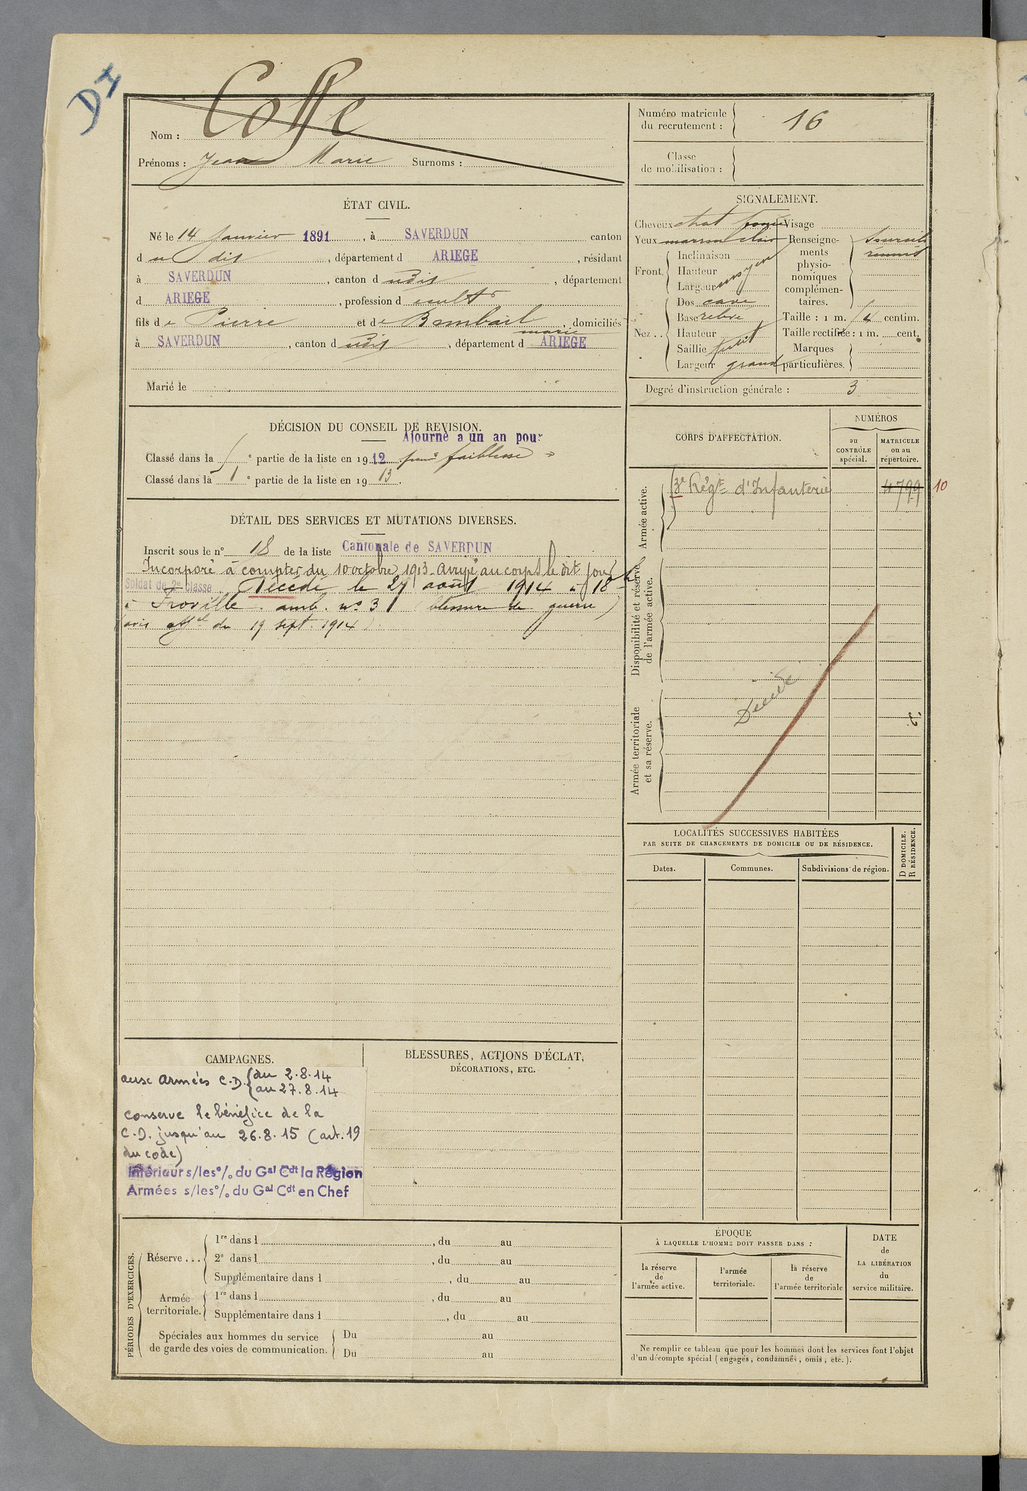 DI
Nom : Cosse
Prénoms : Jean Marie Surnoms :
Numéro matricule
du recrutement : 16
Classe
de mobilisation :
ÉTAT CIVIL.
Né le 14 Janvier 1891, à SAVERDUN canton
d u dit, département d ARIEGE, résidant
à SAVERDUN, canton d udit, département
d ARIEGE, profession d cultr
fils de Pierre et de Bombail marie, domiciliés
à SAVERDUN, canton d udit, département d ARIEGE
Marié le
SIGNALEMENT.
Cheveux chat foncé Visage
Yeux marron clair
Front. Inclinaison
Hauteur moyen
Largeur
Nez. Dos cave
Base relevé
Hauteur petit
Saillie
Largeur grand
Renseignements physionomiques complémentaires. Sourcils réunis
Taille : 1 m. 64 centim.
Taille rectifiée : 1 m. cent.
Marques
particulières.
Degré d'instruction générale : 3
DÉCISION DU CONSEIL DE REVISION.
Ajourné a un an pour
Classé dans la e partie de la liste en 1912 pour faiblesse
Classé dans la 1e partie de la liste en 1913.
DÉTAIL DES SERVICES ET MUTATIONS DIVERSES.
Inscrit sous le no 18 de la liste Cantonale de SAVERDUN
Incorporé à compter du 10 octobre 1913 arrivé au corps le dit jour
Soldat de 2e classe. Décédé le 27 août 1914 à 18 h
à Froville amb. no 3 (blessure de guerre)
avis offel du 19 sept. 1914
CORPS D'AFFECTATION.
NUMÉROS
au
CONTRÔLE
spécial.
MATRICULE
ou au
répertoire.
Armée active.
3e Régt d'Infanterie 4799 10
Disponibilité et réserve
de l'armée active.
Armée territoriale
et sa réserve.
Décédé
LOCALITÉS SUCCESSIVES HABITÉES
PAR SUITE DE CHANGEMENTS DE DOMICILE OU DE RÉSIDENCE.
Dates. Communes. Subdivisions de région.
D DOMICILE.
R RÉSIDENCE.
CAMPAGNES.
aux Armées C.D. du 2.8.14
au 27.8.14
conserve le bénéfice de la
C.D. jusqu'au 26.8.15 (art. 19
du code)
Intérieur s/les o/. du Gal Cdt la Région
Armées s/les o/. du Gal Cdt en Chef
BLESSURES, ACTIONS D'ÉCLAT,
DÉCORATIONS, ETC.
PÉRIODES D'EXERCICES.
Réserve... 1re dans l , du au
2e dans l , du au
Supplémentaire dans l , du au
Armée
territoriale. 1re dans l , du au
Supplémentaire dans l , du au
Spéciales aux hommes du service
de garde des voies de communication. Du au
Du au
ÉPOQUE
À LAQUELLE L'HOMME DOIT PASSER DANS :
la réserve
de
l'armée active.
l'armée
territoriale.
la réserve
de
l'armée territoriale
DATE
de
LA LIBÉRATION
du
service militaire.
Ne remplir ce tableau que pour les hommes dont les services font l'objet
d'un décompte spécial (engagés, condamnés, omis, etc.).